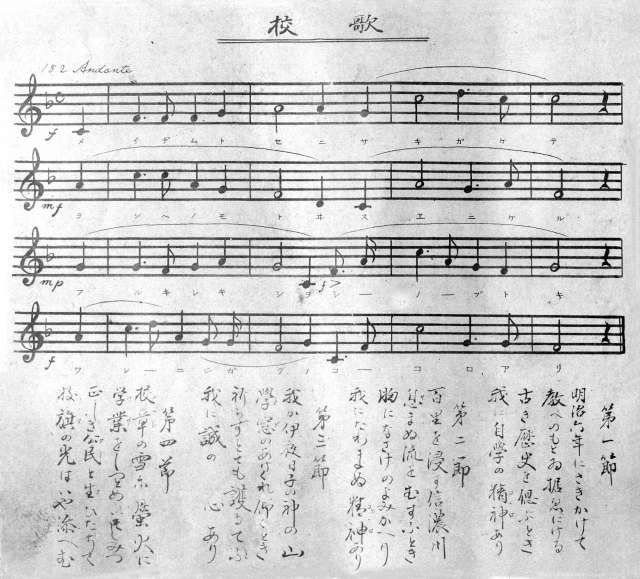 校歌
Andante
f
メ イ ヂ ム ト セ ニ サ キ ガ ケ テ
mf
ヲ シ ヘ ノ モ ト ヰ ス ヱ ニ ケ ル
mp
フ ル キ レ キ シ ヲ シ ー ノ ー ブ ト キ
f
ワ レ ー ニ ジ ガ ク ノ コ ー コ ロ ア リ
第一節
明治六年にさきかけて
教へのもとゐ据ゑにける
古き歴史を偲ぶとき
我に自学の精神あり
第二節
百里を浸す信濃川
まぬ流をむすぶとき
胸になさけのよみかへり
我にたわまぬ精神あり
第三節
我か伊夜日子の神の山
学窓の 仰くとき
祈らずとても護るてふ
我に誠の 心あり
第四節
の雪 螢火に
学業を いそしみつ
正しき公民と生ひたちて
校旗の光はいや添へむ